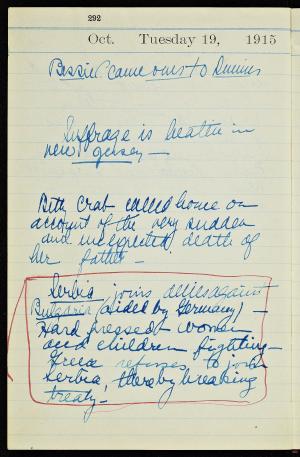 292
Oct. Tuesday 19, 1915
Bessie came over to dinner
Suffrage is beaten in
new jersey —
Betty Crab called home on
account of the very sudden
and unexpected death of
her father —
Serbia joins allies against
Bulgaria (aided by Germany) —
Hard pressed women
and children fighting —
Greece refuses to join
Serbia, thereby breaking
treaty —